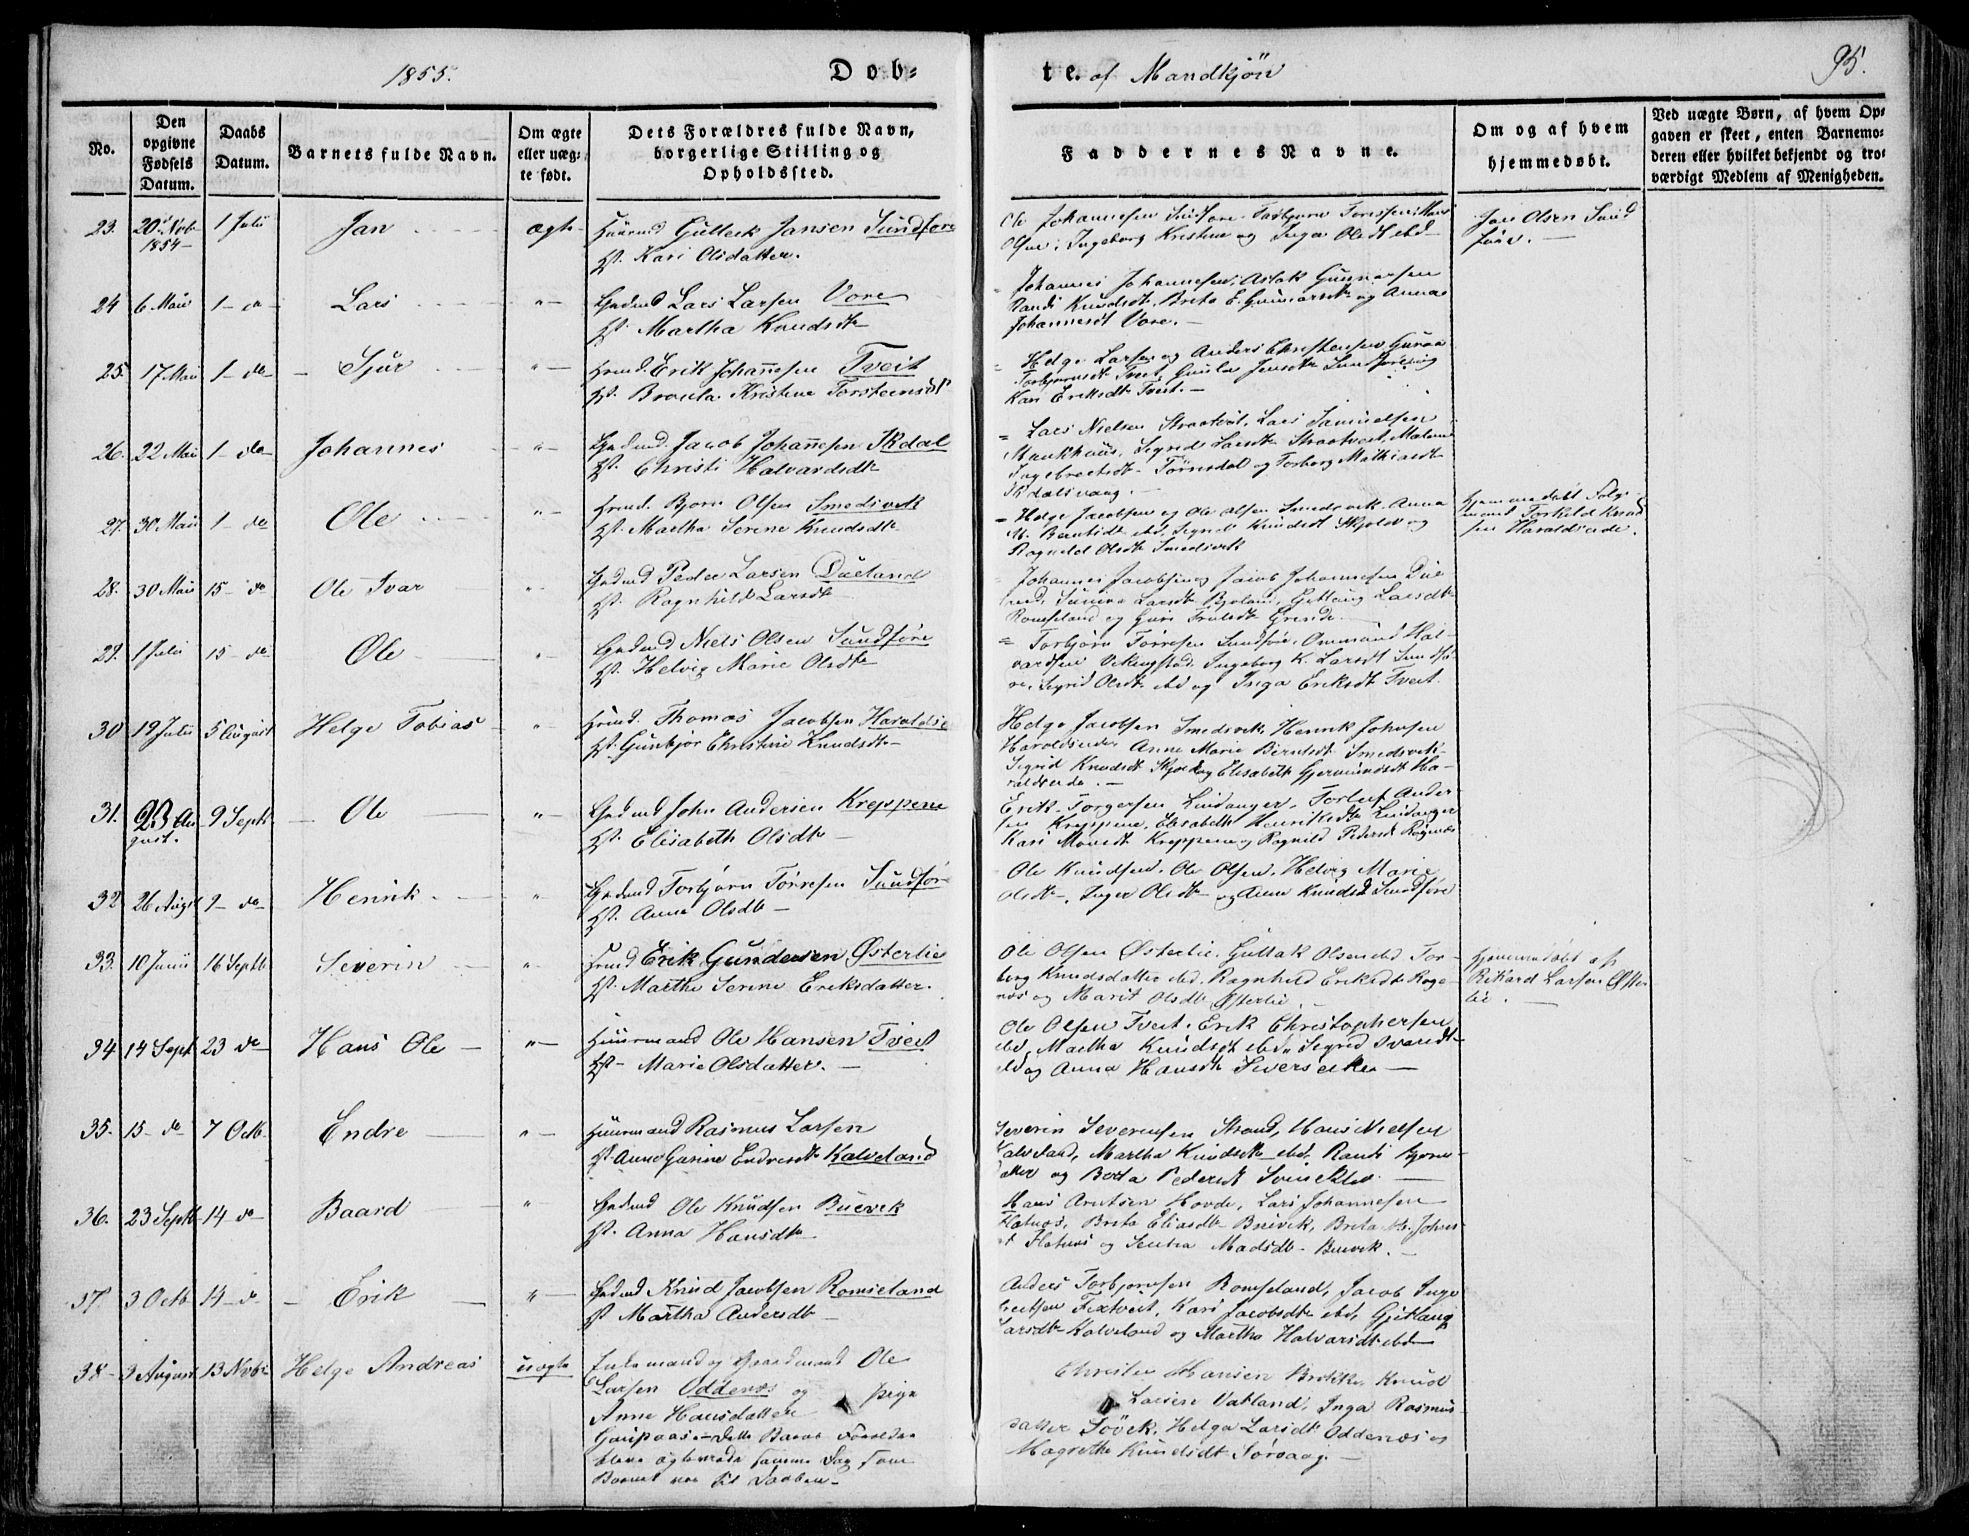 1855.
Dob=
te. af Mandkjön
95.
No.
Den opgivne Fødsels Datum.
Daabs Datum.
Barnets fulde Navn.
Om ægte eller uæg-te født.
Dets Forældres fulde Navn, borgerlige Stilling og Opholdssted.
Faddernes Navne.
Om og af hvem hjemmedøbt.
Ved uægte Børn, af hvem Op-gaven er skeet, enten Barnemo-deren eller hvilket bekjendt og tro-værdigt Medlem af Menigheden.
23. 20 Nob. 1 Julii Jan ægte Huusmd Gulleck Jansen Sundføre
1854
H. Kari Olsdatter.
Ole Johannesen Sundføre
Olsen, Ingeborg Kristine og Inga Olsdt ibd
Jan Olsen Sund
føre.
24 6 Maii 1 - do Lars "- Gadmd Lars Larsen Vore
H. Martha Knudsdt
Johannes Johannesen, Aslak Gunnarsen
Randi Knudsdt, Brita E. Gunnarsdt og Anna
Johannesdt Vore.
25. 17 Mai 1 - do - Sjur "- Huusmd. Erik Johannesen Tveit
H. Broula Kristine Torsteinsdt
= Helge Larsen og Anders Christensen
Torbjørnsdt Tveit, Jensdt Sundføre og
Kari Eriksdt Tveit.
26. 22 Mai 1 - do Johannes "- Gadmd. Jacob Johannesen Ikdal
H. Christi Halvardsdt
= Lars Nielsen Straatveit, Lars Samuelsen
Munkhuus, Sigrid Larsdt Straatveit, Malene
Ingebretsdt Tørresdal og Torborg Mathiasdt
Ikdalsvaag.
27. 30. Maii 1 - do Ole "- Huusmd. Bjørn Olsen Smedsvik
H. Martha Serene Knudsdt
= Helge Jacobsen og Ole Olsen Smedsvik, Anna
M. Berntsdt ibd, Sigrid Knudsdt Skjold og
Ragnild Olsdt Smedsvik
Hjemmedøbt
Torkild Knud
sen Haraldseide.
28. 30 Maii 15 - do Ole Ivar "- Gadmd Peder Larsen Dueland
H. Ragnhild Larsdt
Johannes Jacobsen og Jacob Johannesen Due
land, Larsdt Larsdt
Romseland og Guri Grinde.
29. 1 Julii 15 - do Ole " Gadmd Niels Olsen Sundføre
H. Helvig Marie Olsdt
= Torbjørn Tørresen Sundføre, Ommund Hal-
vardsen Vikingstad, Ingeborg K. Larsdt Sundfø-
re, Sigrid Olsdt ibd og Inga Eriksdt Tveit.
30 19 Julii 5 August Helge Tobias " Huusmd. Thomas Jacobsen Haraldse
H. Gunbjør Christine Knudsdt
Helge Jacobsen Smedsvik, Henrik Johnsen
Haraldseide, Anne Marie Berntsdt Smedsvik
Sigrid Knudsdt Skjold og Elisabeth Gjermundsdt Ha-
raldseide.
31. 23 Au 9 Septb - Ole "- Gadmd John Andersen Kreppene
gust.
H. Elisabeth Olsdt
Erik Torgersen Lindanger, Torluf Ander
sen Kreppene, Elisabeth Henriksdt Lindanger
Kari Kreppene og Ragnild Pedersdt Ragnæs
32 26 Augst 9 - do Henrik " Gadmd Torbjørn Tørresen Sundføre
H. Anna Olsdt
Ole Knudsen, Ole Olsen, Helvig Marie
Olsdt, Inger Olsdt og Anne Knudsdt Sundføre
33. 10 Junii 16 Septb Severin " Huusmd Erik Gundersen Østerlie
H. Marthe Serine Eriksdatter.
Ole Olsen Østerlie, Guttak Olsen ibd Tor-
borg Knudsdatter ibd, Ragnhild Eriksdt Rage
næs og Marit Olsdt Østerlie.
Hjemmedøbt af
Rikard Larsen Øster
lie.
34 14 Sept 23 do Hans Ole "- Huusmand Ole Hansen Tveit
H. Marie Olsdatter.
Ole Olsen Tveit, Erik Christophersen
ibd, Martha Knudsdt ibd, Sigrid Ivarsdt
ibd og Anna Hansdt
35. 15 - do 7 Octb. Endre "- Huusmand Rasmus Larsen
H. Anne Gurine Endresdt Kalveland
Severin Severinsen Strand, Hans Nielsen
Kalveland, Martha Knudsdt ibd, Randi Bjørns
datter og Berta Pedersdt
36. 23 Septb 14 do Baard " Gadmd Ole Knudsen Buevik
H. Anna Hansdt
Hans Arntsen Hovde, Lars Johannesen
Flatnæs, Brita Eliasdt Buevik, Brita M. Johns
dt Flatnæs og Madsdt Buevik.
37 3 Octb 14 - do - Erik "- Gadmd Knud Jacobsen Romseland
H. Martha Andersdt
Anders Torbjørnsen Romseland, Jacob Inge
bretsen Fixtveit, Kari Jacobsdt ibd, Gjetlaug
Larsdt Kalveland og Martha Halvarsdt ibd
38 3 August 13 Nobr Helge Andreas uægte Enkemand og Gaardmand Ole
Larsen Oddenæs og pige
Anne Hansdatter
Garpaas. - Dette Barns Forældre
bleve ægteviede samme Dag som
Barnet var til Daaben.
Christen Hansen Brekke, Knud
Larsen Vatland, Inga Rasmus
datter Søvik, Helga Larsdt Oddenæs og
Magrethe Knudsdt Sørvaag.